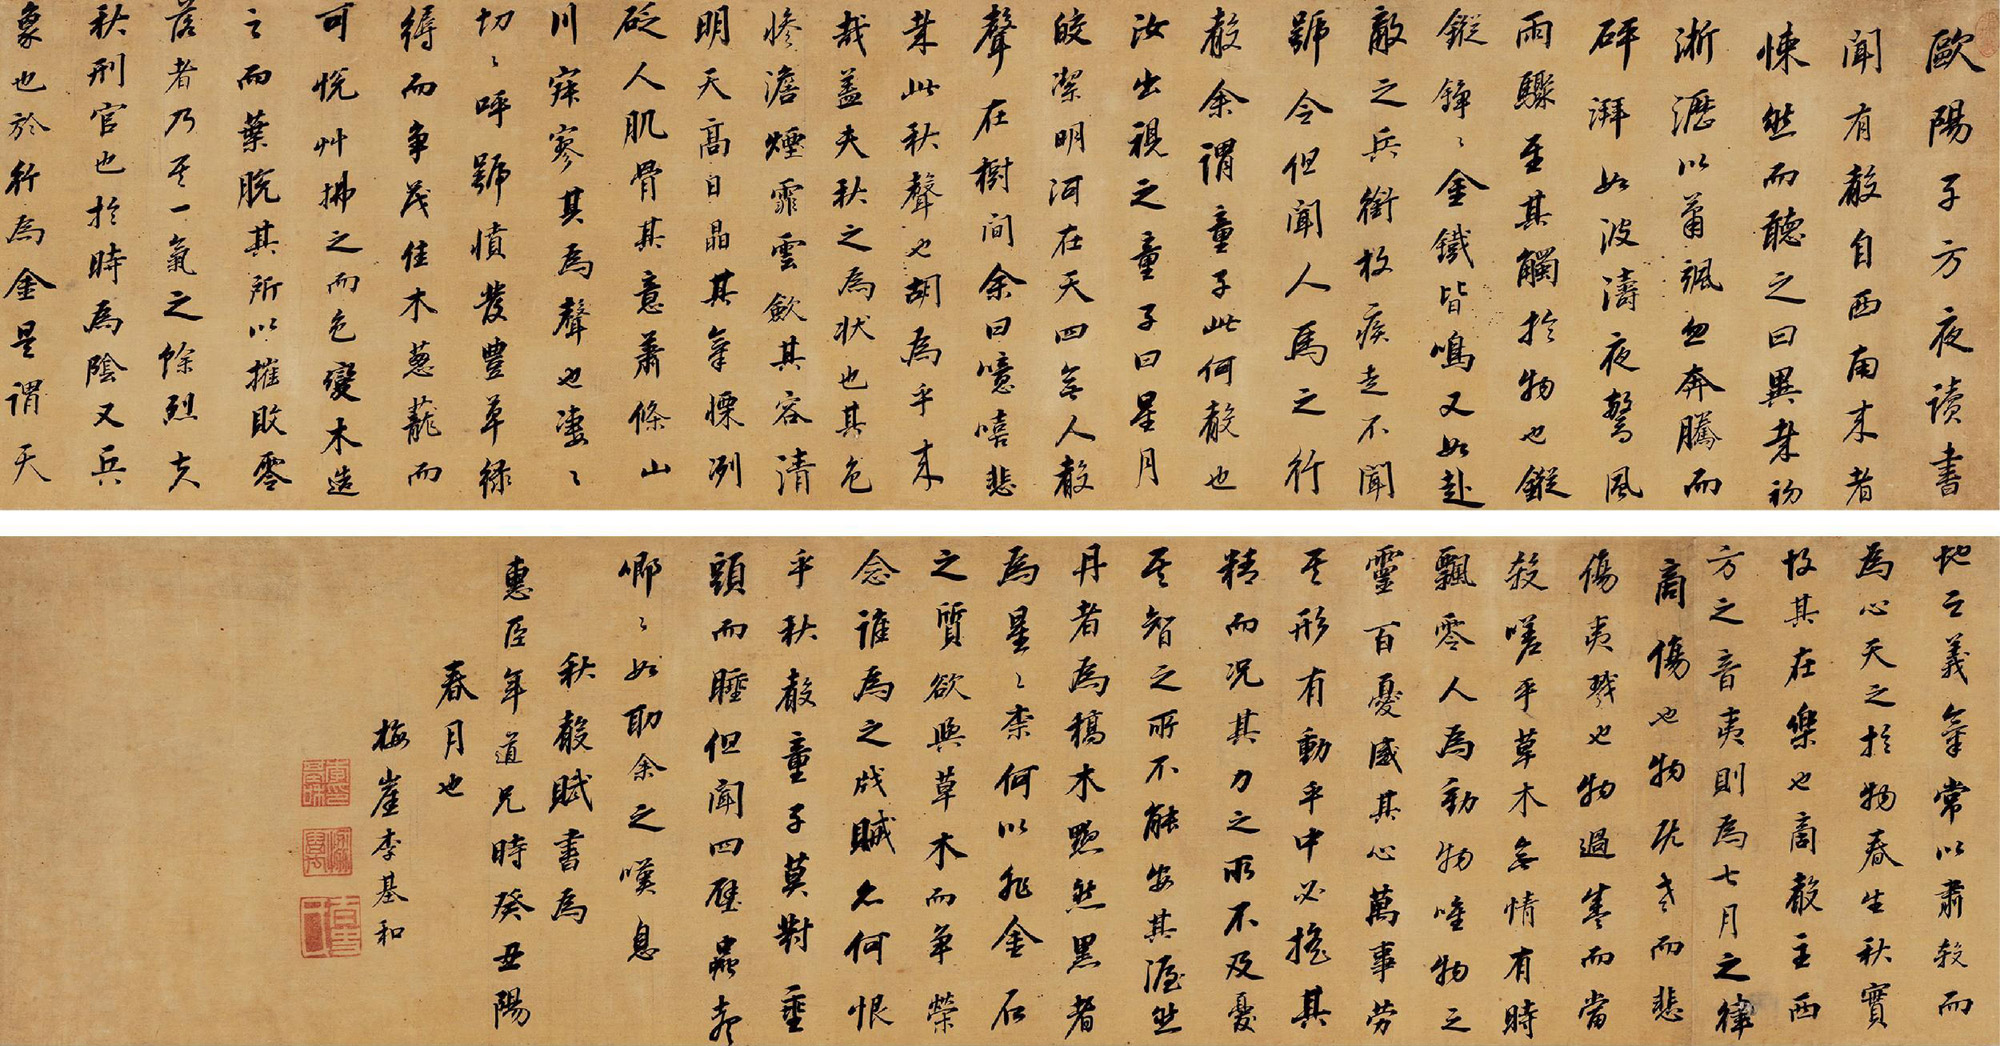 歐陽子方夜讀書
聞有聲自西南来者
悚然而聽之曰異哉初
淅瀝以蕭颯忽奔騰而
砰湃如波濤夜驚風
雨驟至其觸於物也鏦
鏦錚〻金鐵皆鳴又如赴
敵之兵銜枚疾走不聞
號令但聞人馬之行
聲余謂童子此何聲也
汝出視之童子曰星月
皎潔明河在天四無人聲
聲在樹間余曰噫嘻悲
哉此秋聲也胡為乎来
哉盖夫秋之為状也其色
惨澹煙霏雲歛其容清
明天高日晶其氣慄冽
砭人肌骨其意蕭條山
川寂寥其為聲也凄〻
切〻呼號憤發豐草緑
縟而争茂佳木蔥蘢而
可悦艸拂之而色變木遭
之而葉脱其所以摧敗零
落者乃其一氣之餘烈夫
秋刑官也於時為陰又兵
象也於行為金是謂天
地之義氣常以肅殺而
為心天之於物春生秋實
故其在樂也商聲主西
方之音夷則為七月之律
商傷也物既老而悲
傷夷戮也物過盛而當
殺嗟乎草木無情有時
飄零人為動物唯物之
靈百憂感其心萬事勞
其形有動乎中必搖其
精而况其力之所不及憂
其智之所不能宜其渥然
丹者為槁木黟然黑者
為星〻柰何以非金石
之質欲與草木而争榮
念誰為之戕賊亦何恨
乎秋聲童子莫對垂
頭而睡但聞四壁蟲聲
唧〻如助余之嘆息
秋聲賦書為
惠臣年道兄時癸丑陽
春月也
梅崖李基和